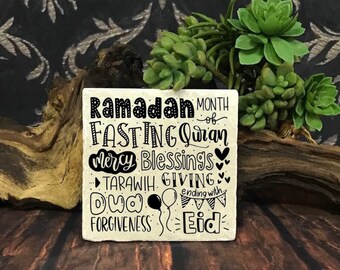 Ramadan MONTH
of
FASTING Quran
Mercy Blessings
TARAWIH GIVING
Dua ending with
FORGIVENESS Eid